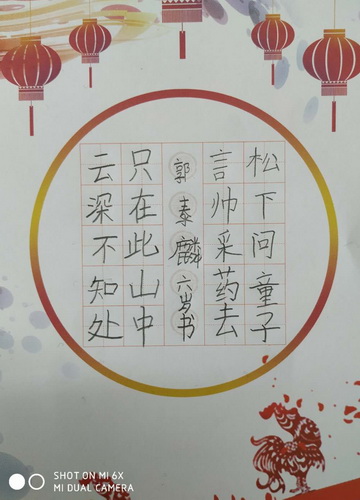 松下问童子
言帅采药去
郭泰麟六岁书
只在此山中
云深不知处
SHOT ON MI 6X
MI DUAL CAMERA